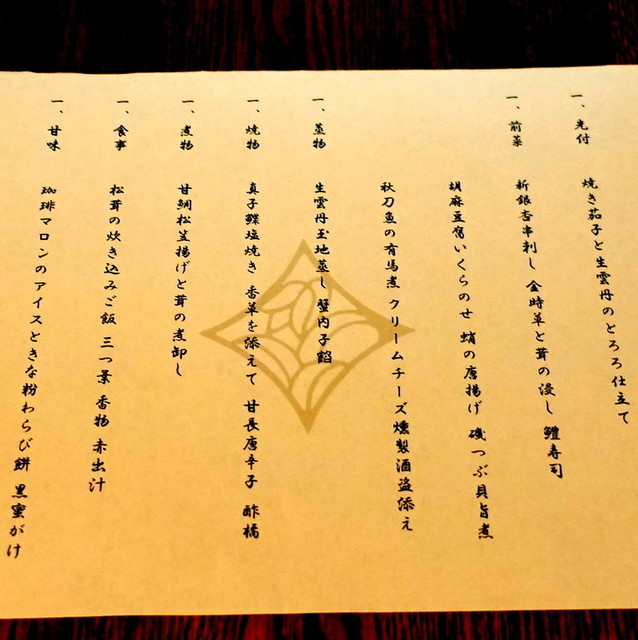 一、先付 焼き茄子と生雲丹のとろろ仕立て
一、前菜 新銀杏串刺し 金時草と茸の浸し 鱧寿司
胡麻豆腐いくらのせ 蛸の唐揚げ 磯つぶ貝旨煮
秋刀魚の有馬煮 クリームチーズ燻製酒盗添え
一、蒸物 生雲丹玉地蒸し 蟹内子餡
一、焼物 真子鰈塩焼き 香草を添えて 甘長唐辛子 酢橘
一、煮物 甘鯛松笠揚げと茸の煮卸し
一、食事 松茸の炊き込みご飯 三つ葉 香物 赤出汁
一、甘味 珈琲マロンのアイスときな粉わらび餅 黒蜜がけ